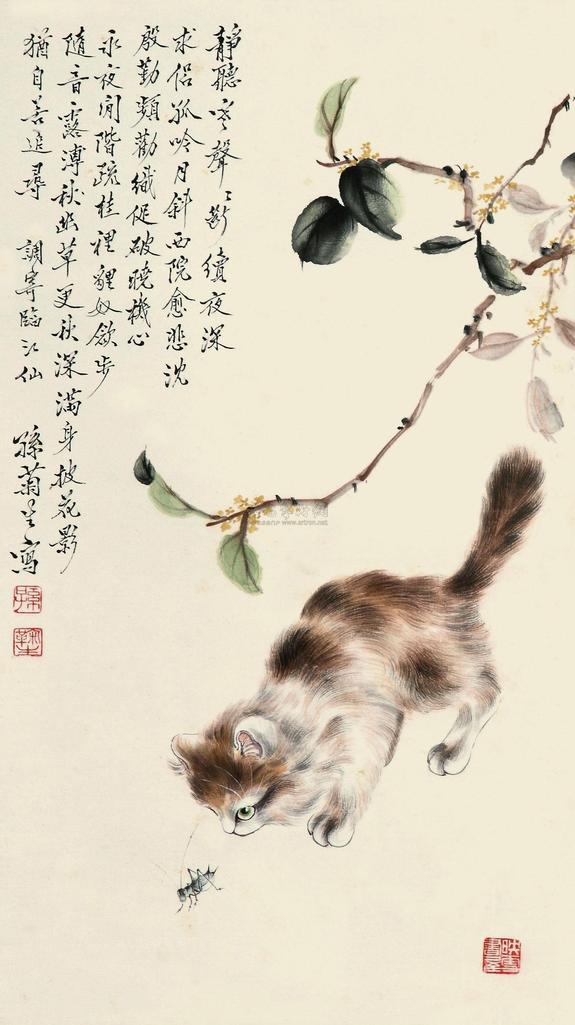 靜聽寒聲〻斷續夜深
求侶孤吟月斜西院愈悲沈
殷勤頻勸織促破曉機心
永夜閒階疏桂裡貍奴欲步
隨音露漙秋幽草更秋深滿身披花影
猶自善追尋 調寄臨江仙 孫菊生寫
www.artron.net